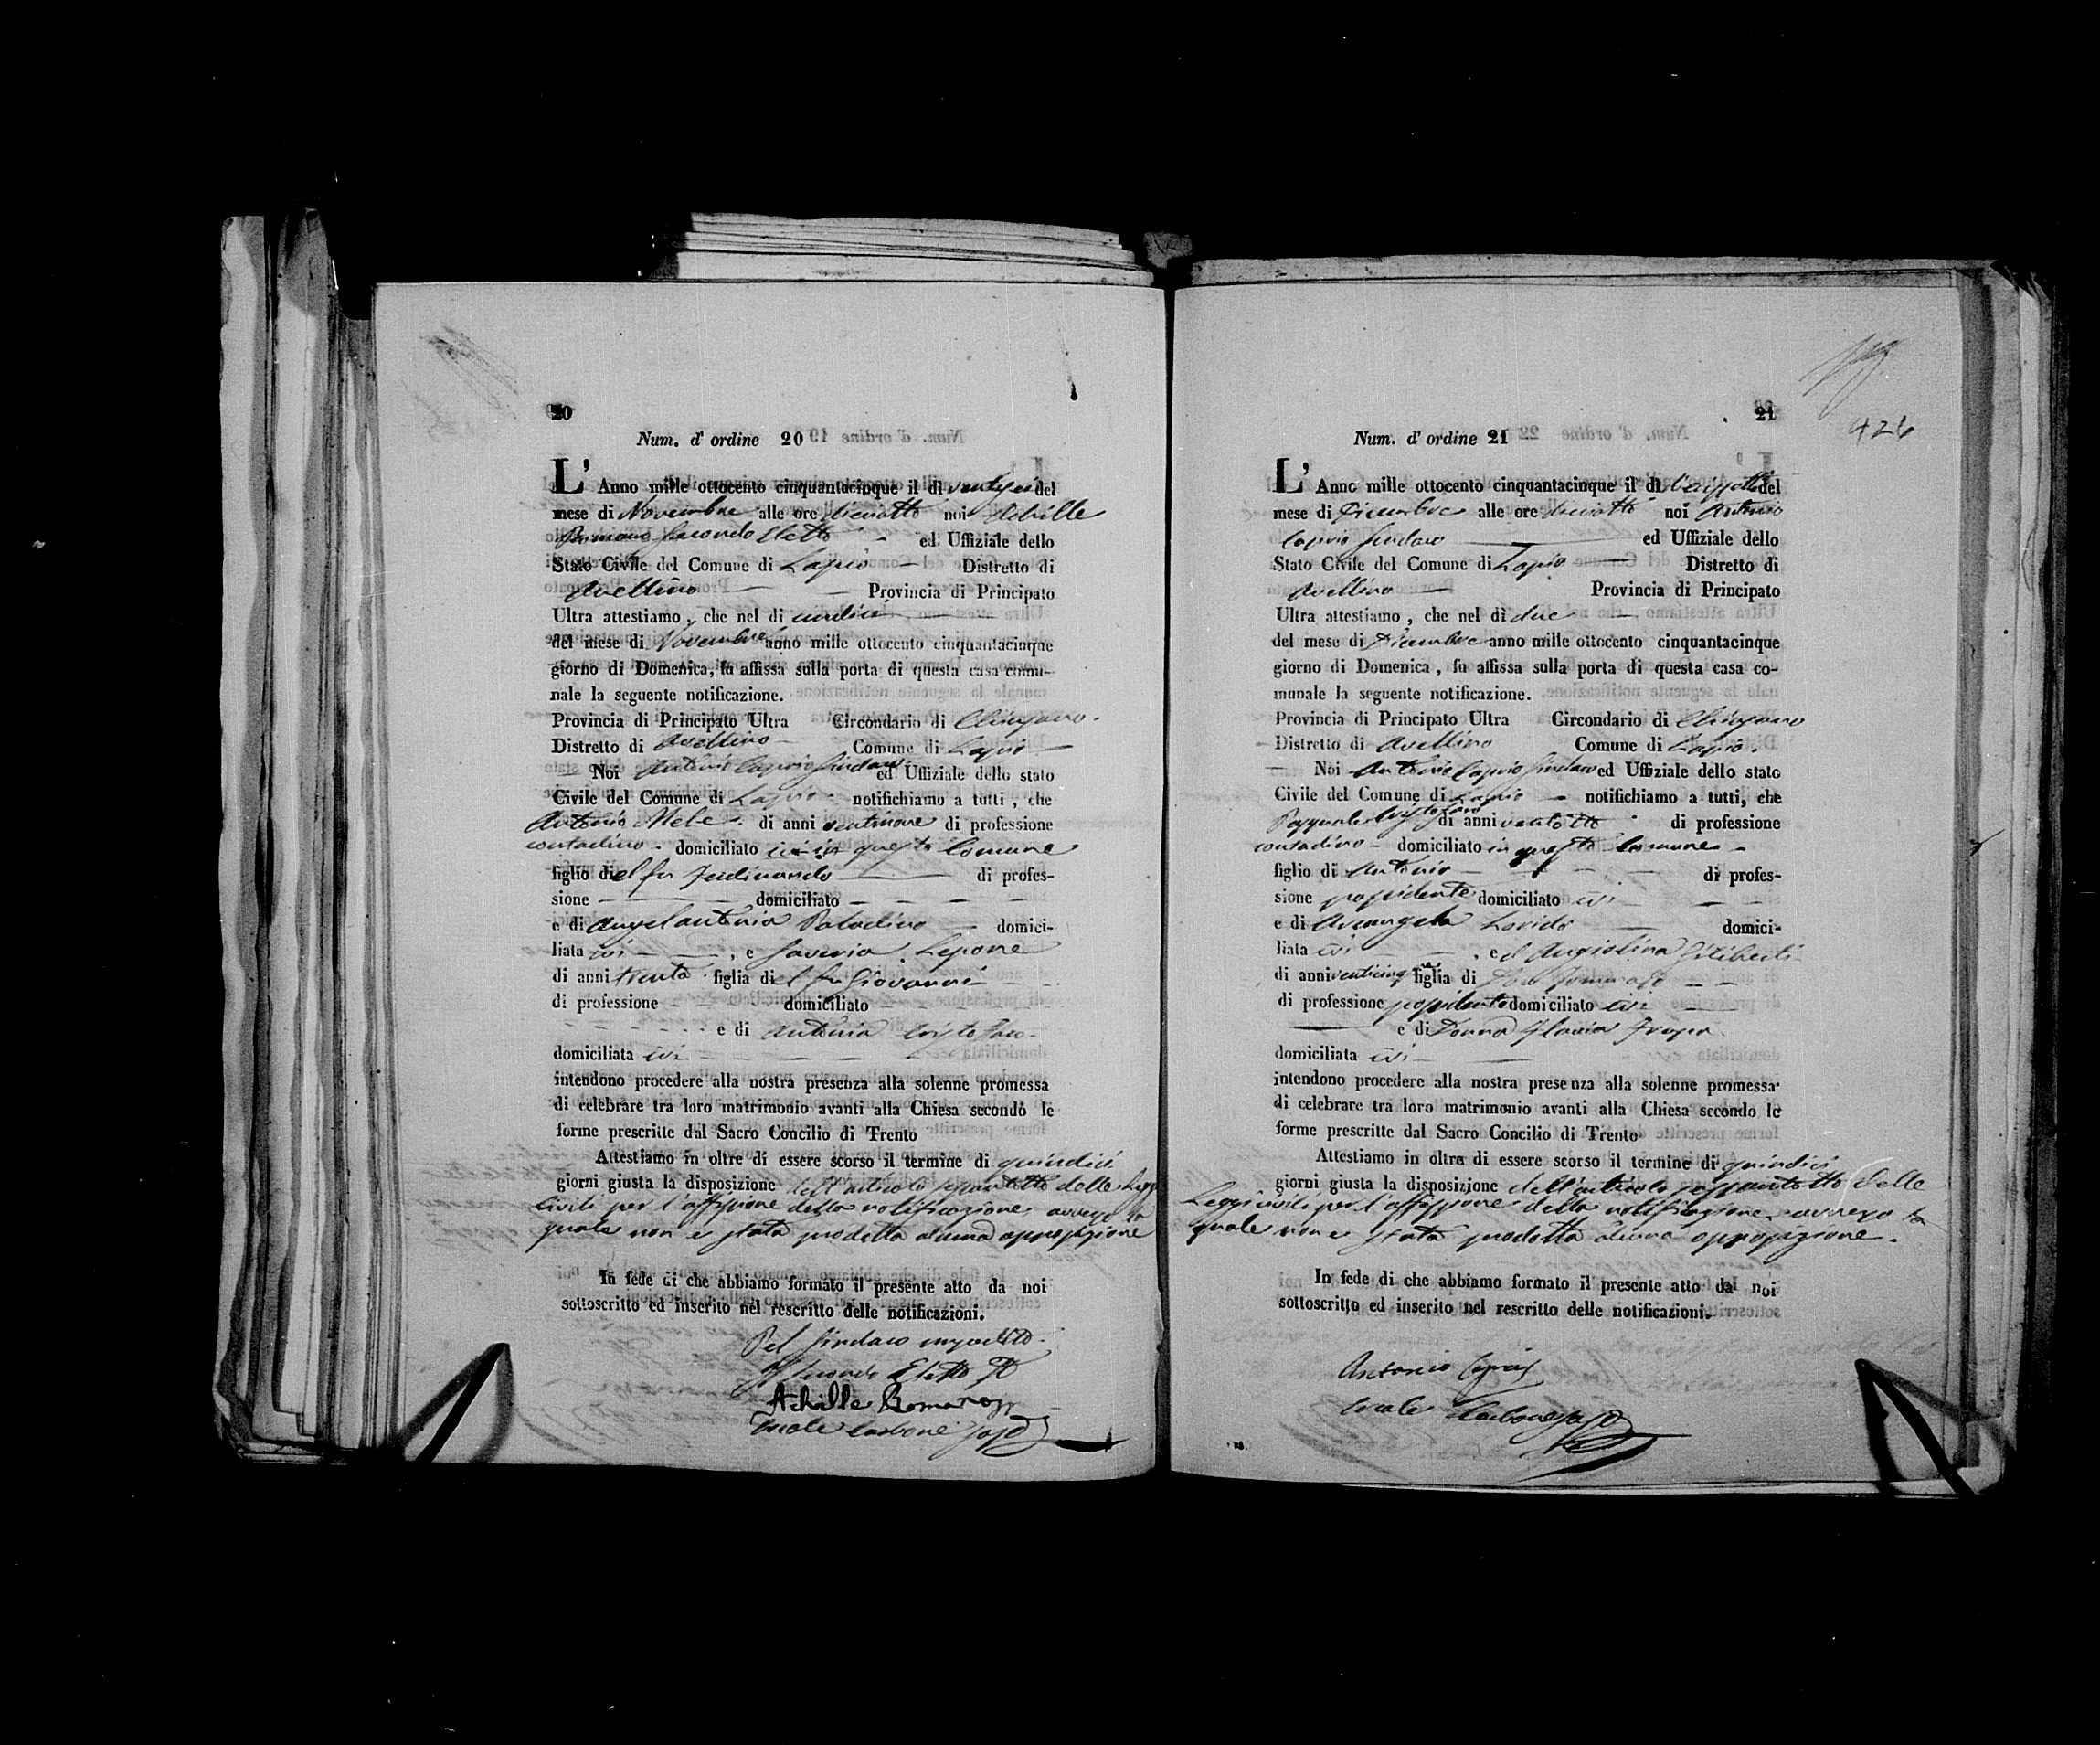 20
Num. d' ordine 20
L' Anno mille ottocento cinquantacinque il dì ventisei del
mese di Novembre alle ore diciotto noi Achille
Romano Secondo Eletto ed Uffiziale dello
Stato Civile del Comune di Lapio — Distretto di
Avellino — — Provincia di Principato
Ultra attestiamo, che nel di undici — —
del mese di Novembre anno mille ottocento cinquantacinque
giorno di Domenica, fu affissa sulla porta di questa casa comu-
nale la seguente notificazione.
Provincia di Principato Ultra Circondario di Chiusano.
Distretto di Avellino — Comune di Lapio —
— Noi Antonio Caprio Sindaco ed Uffiziale dello stato
Civile del Comune di Lapio — notifichiamo a tutti, che
Antonio Mele di anni ventinove di professione
contadino. domiciliato in questo Comune
figlio del fu Ferdinando — — di profes-
sione — — domiciliato — — — —
e di Angelantonia Paladino — domici-
liata ivi — —, e Saveria Lepore
di anni trenta figlia del fu Giovanni — —
di professione — domiciliato — — —
e di Antonia Cristofaro
domiciliata ivi — — —
intendono procedere alla nostra presenza alla solenne promessa
di celebrare tra loro matrimonio avanti alla Chiesa secondo le
forme prescritte dal Sacro Concilio di Trento
Attestiamo in oltre di essere scorso il termine di quindici
giorni giusta la disposizione dell'articolo sessantotto delle Leggi
Civili per l'affissione della notificazione avverso la
quale non è stata prodotta alcuna opposizione
In fede di che abbiamo formato il presente atto da noi
sottoscritto ed inserito nel rescritto delle notificazioni.
Pel Sindaco impedito
Il Secondo Eletto
Achille Romano
Carbone
21
426
Num. d' ordine 21
L' Anno mille ottocento cinquantacinque il dì diciassette del
mese di Dicembre alle ore diciotto noi Antonio
Caprio Sindaco — ed Uffiziale dello
Stato Civile del Comune di Lapio — Distretto di
Avellino — Provincia di Principato
Ultra attestiamo, che nel dì due —
del mese di Dicembre anno mille ottocento cinquantacinque
giorno di Domenica, fu affissa sulla porta di questa casa co-
munale la seguente notificazione.
Provincia di Principato Ultra Circondario di Chiusano
Distretto di Avellino Comune di Lapio.
— Noi Antonio Caprio Sindaco ed Uffiziale dello stato
Civile del Comune di Lapio — notifichiamo a tutti, che
Pasquale Cristofaro di anni ventotto di professione
contadino — domiciliato in questo Comune —
figlio di Antonio — — — — di profes-
sione possidente domiciliato ivi — —
e di Arcangela — domici-
liata ivi — —, ed Angiolina Ciliberti
di anni venticinque figlia di Don Tommaso — —
di professione possidente domiciliato ivi —
— e di Donna
domiciliata ivi — —
intendono procedere alla nostra presenza alla solenne promessa
di celebrare tra loro matrimonio avanti alla Chiesa secondo le
forme prescritte dal Sacro Concilio di Trento
Attestiamo in oltre di essere scorso il termine di quindici
giorni giusta la disposizione dell'articolo sessantotto delle
Leggi civili per l'affissione della notificazione avverso la
quale non è stata prodotta alcuna opposizione.
In fede di che abbiamo formato il presente atto da noi
sottoscritto ed inserito nel rescritto delle notificazioni.
Antonio Caprio
Carbone